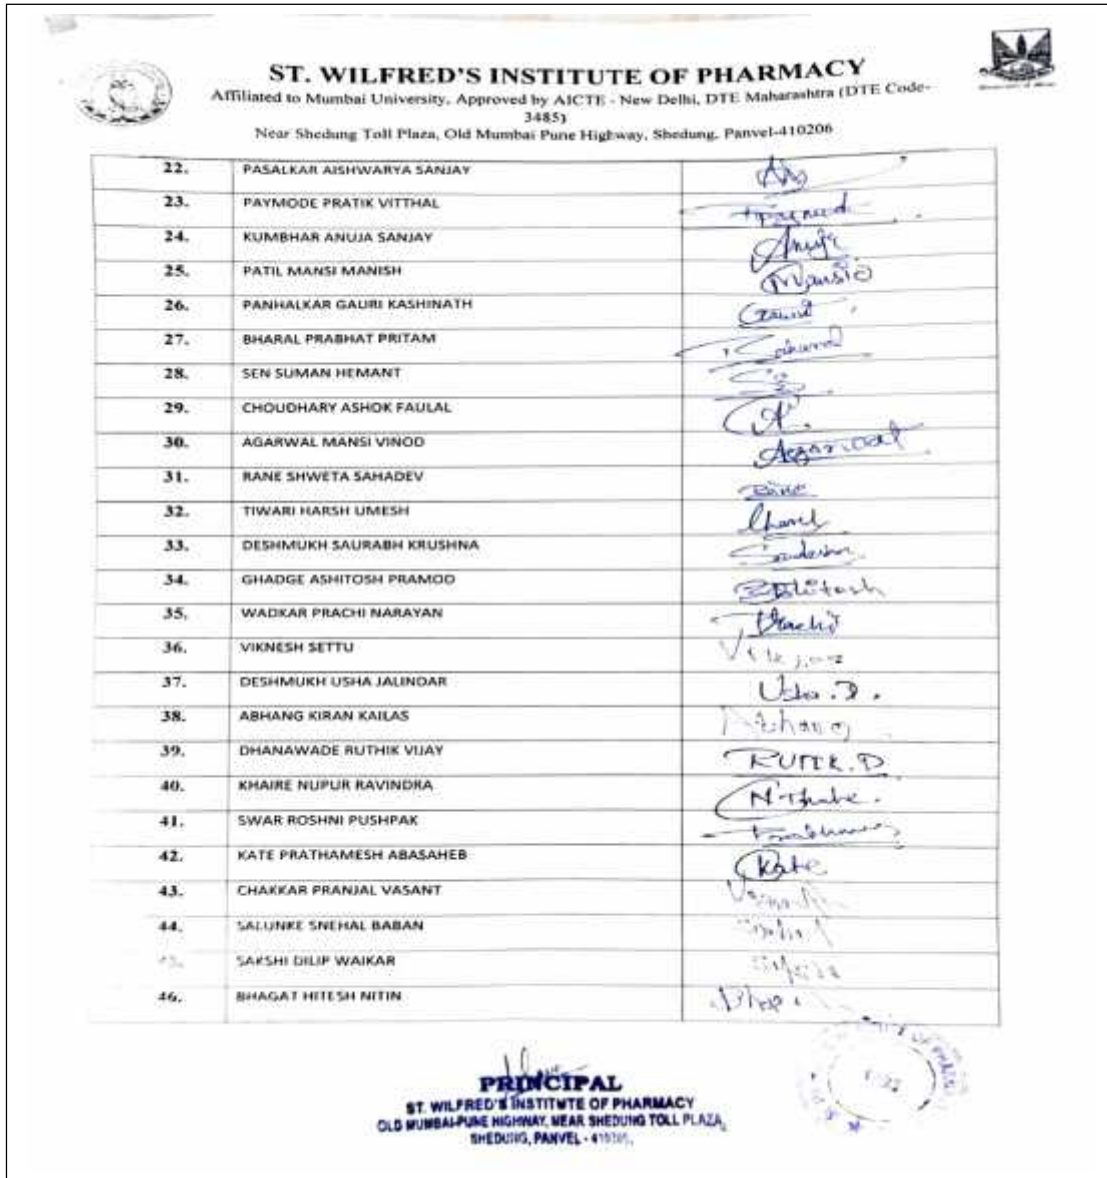 ST. WILFRED'S INSTITUTE OF PHARMACY
Affiliated to Mumbai University, Approved by AICTE - New Delhi, DTE Maharashtra (DTE Code-
3485)
Near Shedung Toll Plaza, Old Mumbai Pune Highway, Shedung, Panvel-410206
22. PASALKAR AISHWARYA SANJAY
23. PAYMODE PRATIK VITTHAL
24. KUMBHAR ANUJA SANJAY Anuja
25. PATIL MANSI MANISH Mansi
26. PANHALKAR GAURI KASHINATH
27. BHARAL PRABHAT PRITAM
28. SEN SUMAN HEMANT
29. CHOUDHARY ASHOK FAULAL
30. AGARWAL MANSI VINOD Agarwal
31. RANE SHWETA SAHADEV Rane
32. TIWARI HARSH UMESH
33. DESHMUKH SAURABH KRUSHNA
34. GHADGE ASHITOSH PRAMOD
35. WADKAR PRACHI NARAYAN Prachi
36. VIKNESH SETTU
37. DESHMUKH USHA JALINDAR Usha.D.
38. ABHANG KIRAN KAILAS Abhang
39. DHANAWADE RUTHIK VIJAY
40. KHAIRE NUPUR RAVINDRA
41. SWAR ROSHNI PUSHPAK
42. KATE PRATHAMESH ABASAHEB Kate
43. CHAKKAR PRANJAL VASANT
44. SALUNKE SNEHAL BABAN
45. SAKSHI DILIP WAIKAR
46. BHAGAT HITESH NITIN
PRINCIPAL
ST. WILFRED'S INSTITUTE OF PHARMACY
OLD MUMBAI-PUNE HIGHWAY, NEAR SHEDUNG TOLL PLAZA,
SHEDUNG, PANVEL -